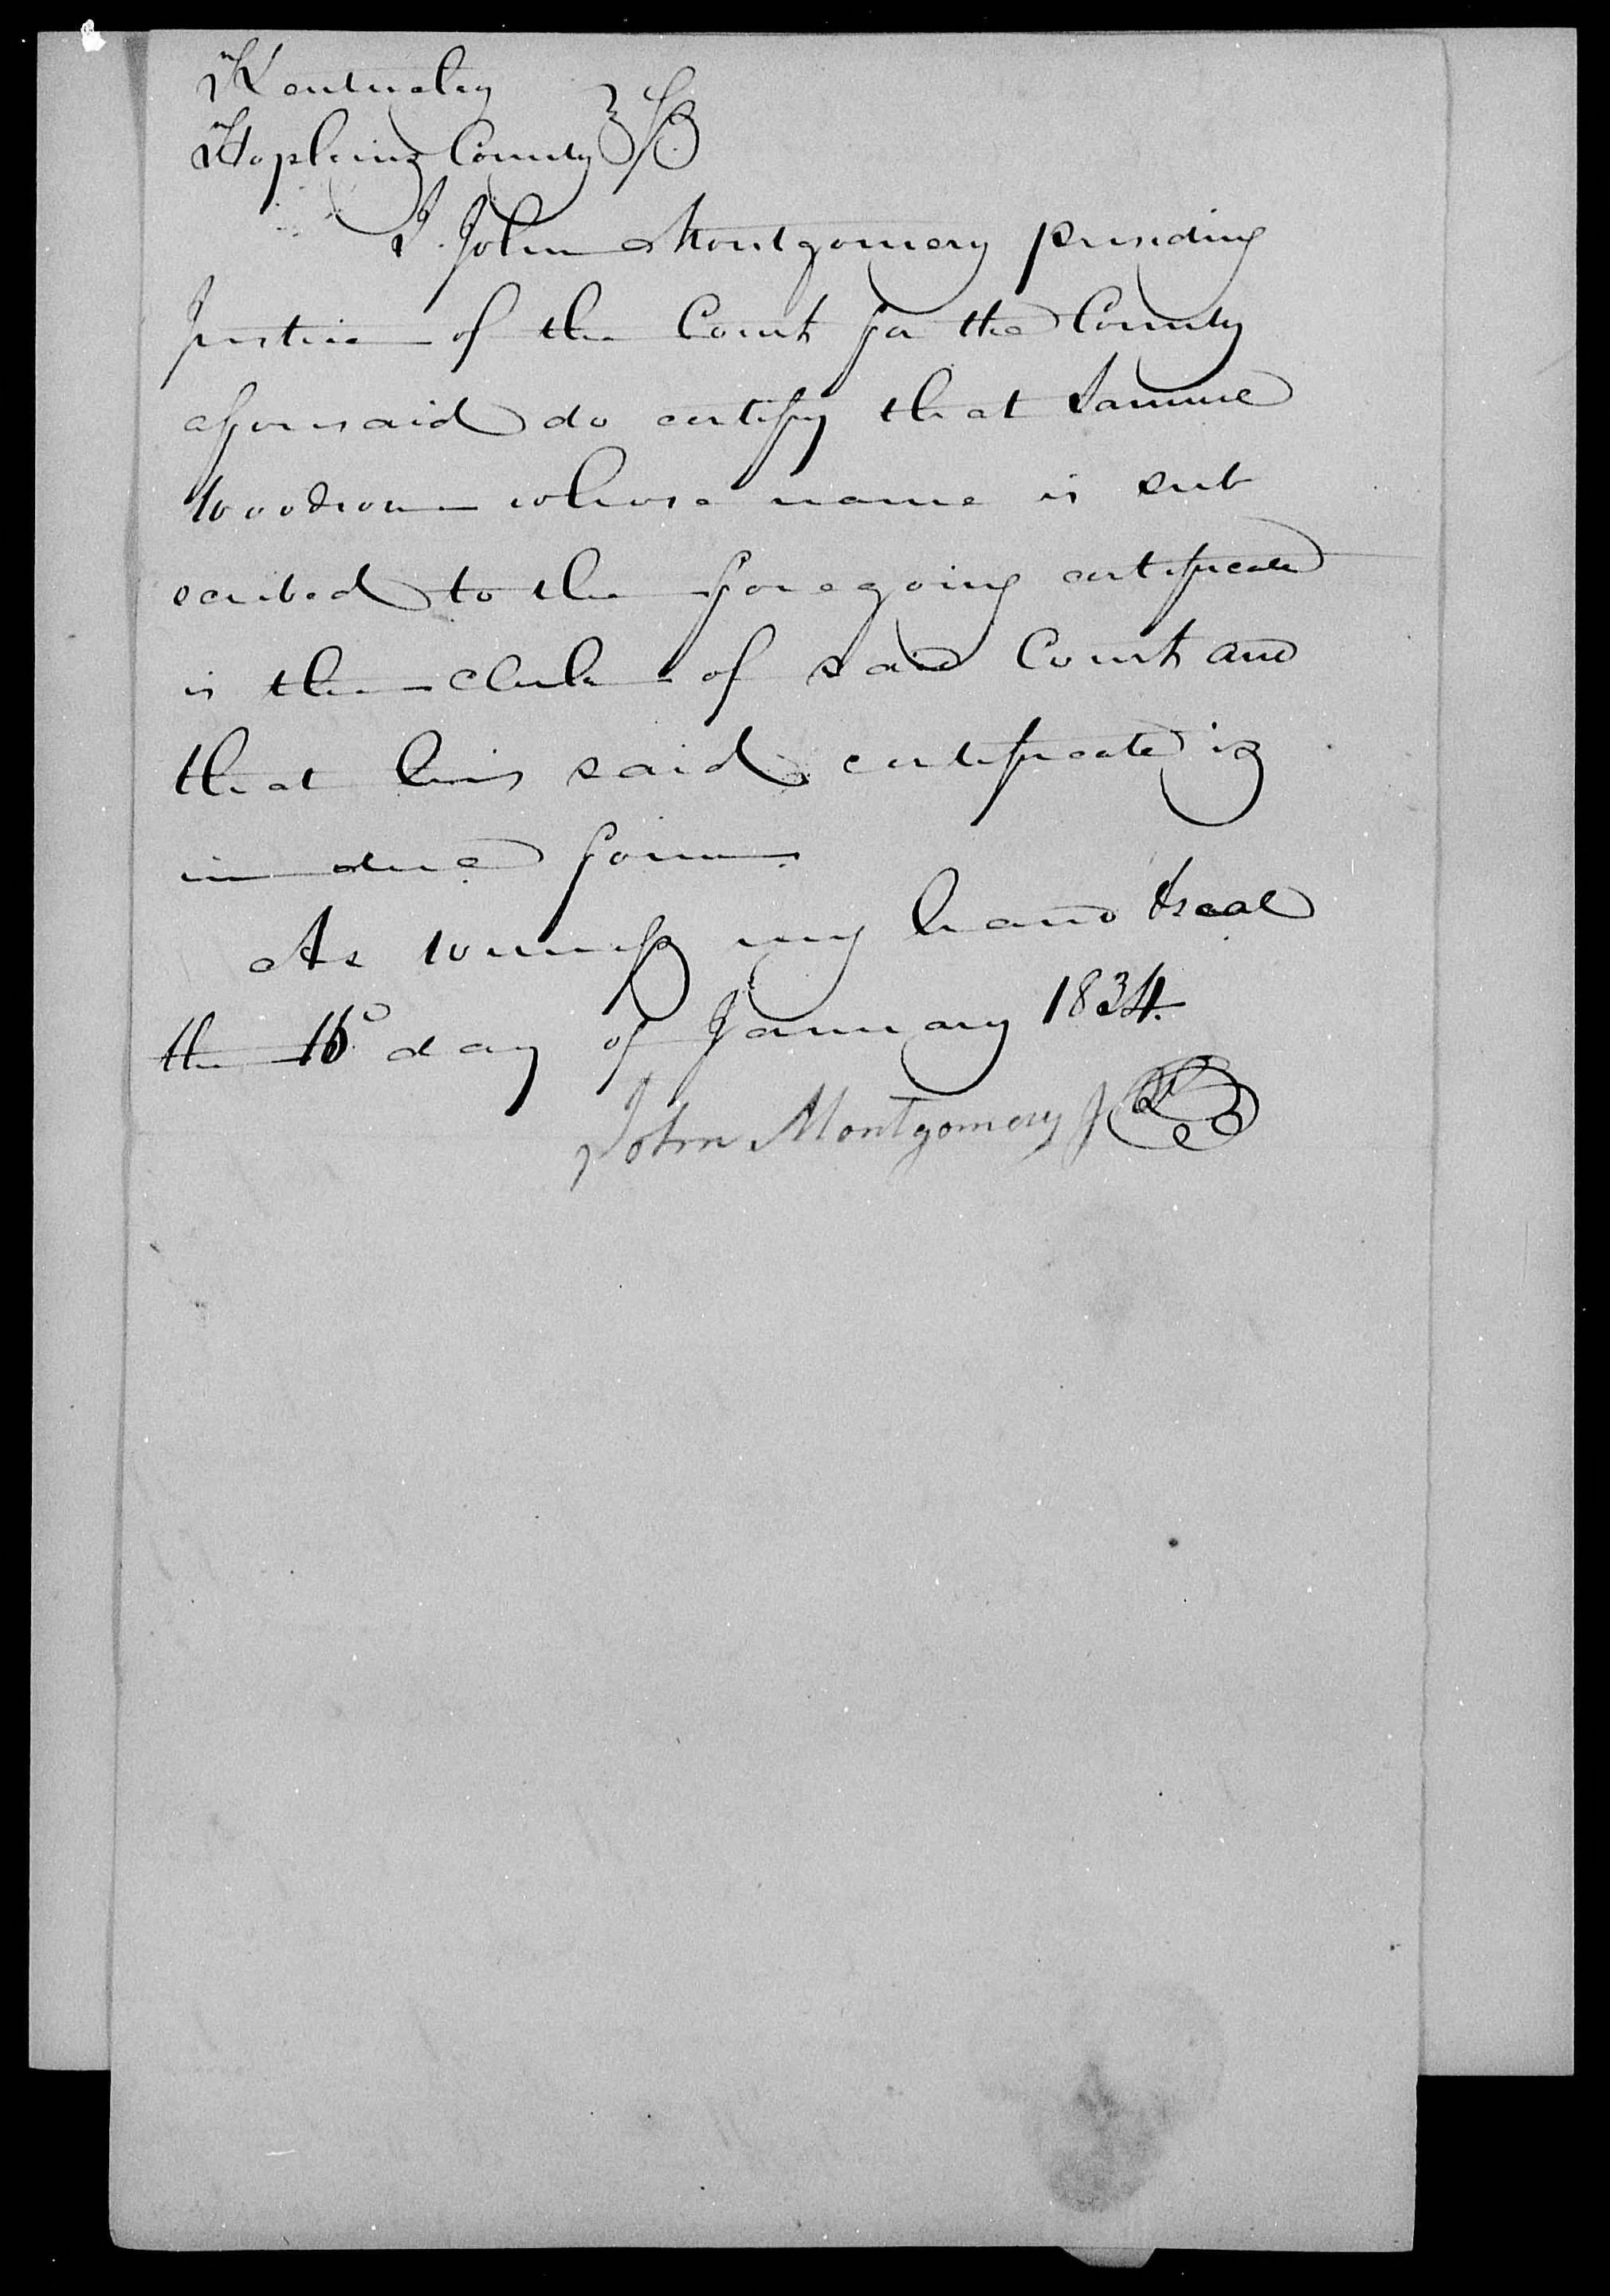 Kentucky
Hopkins County } SS
I John Montgomery presiding
Justice of the Court for the County
aforesaid do certify that Samuel
Woodson whose name is sub
scribed to the foregoing certificate
is the Clerk of said Court and
that his said certificate is
in due form.
As witness my hand & seal
the 16 day of January 1834.
John Montgomery